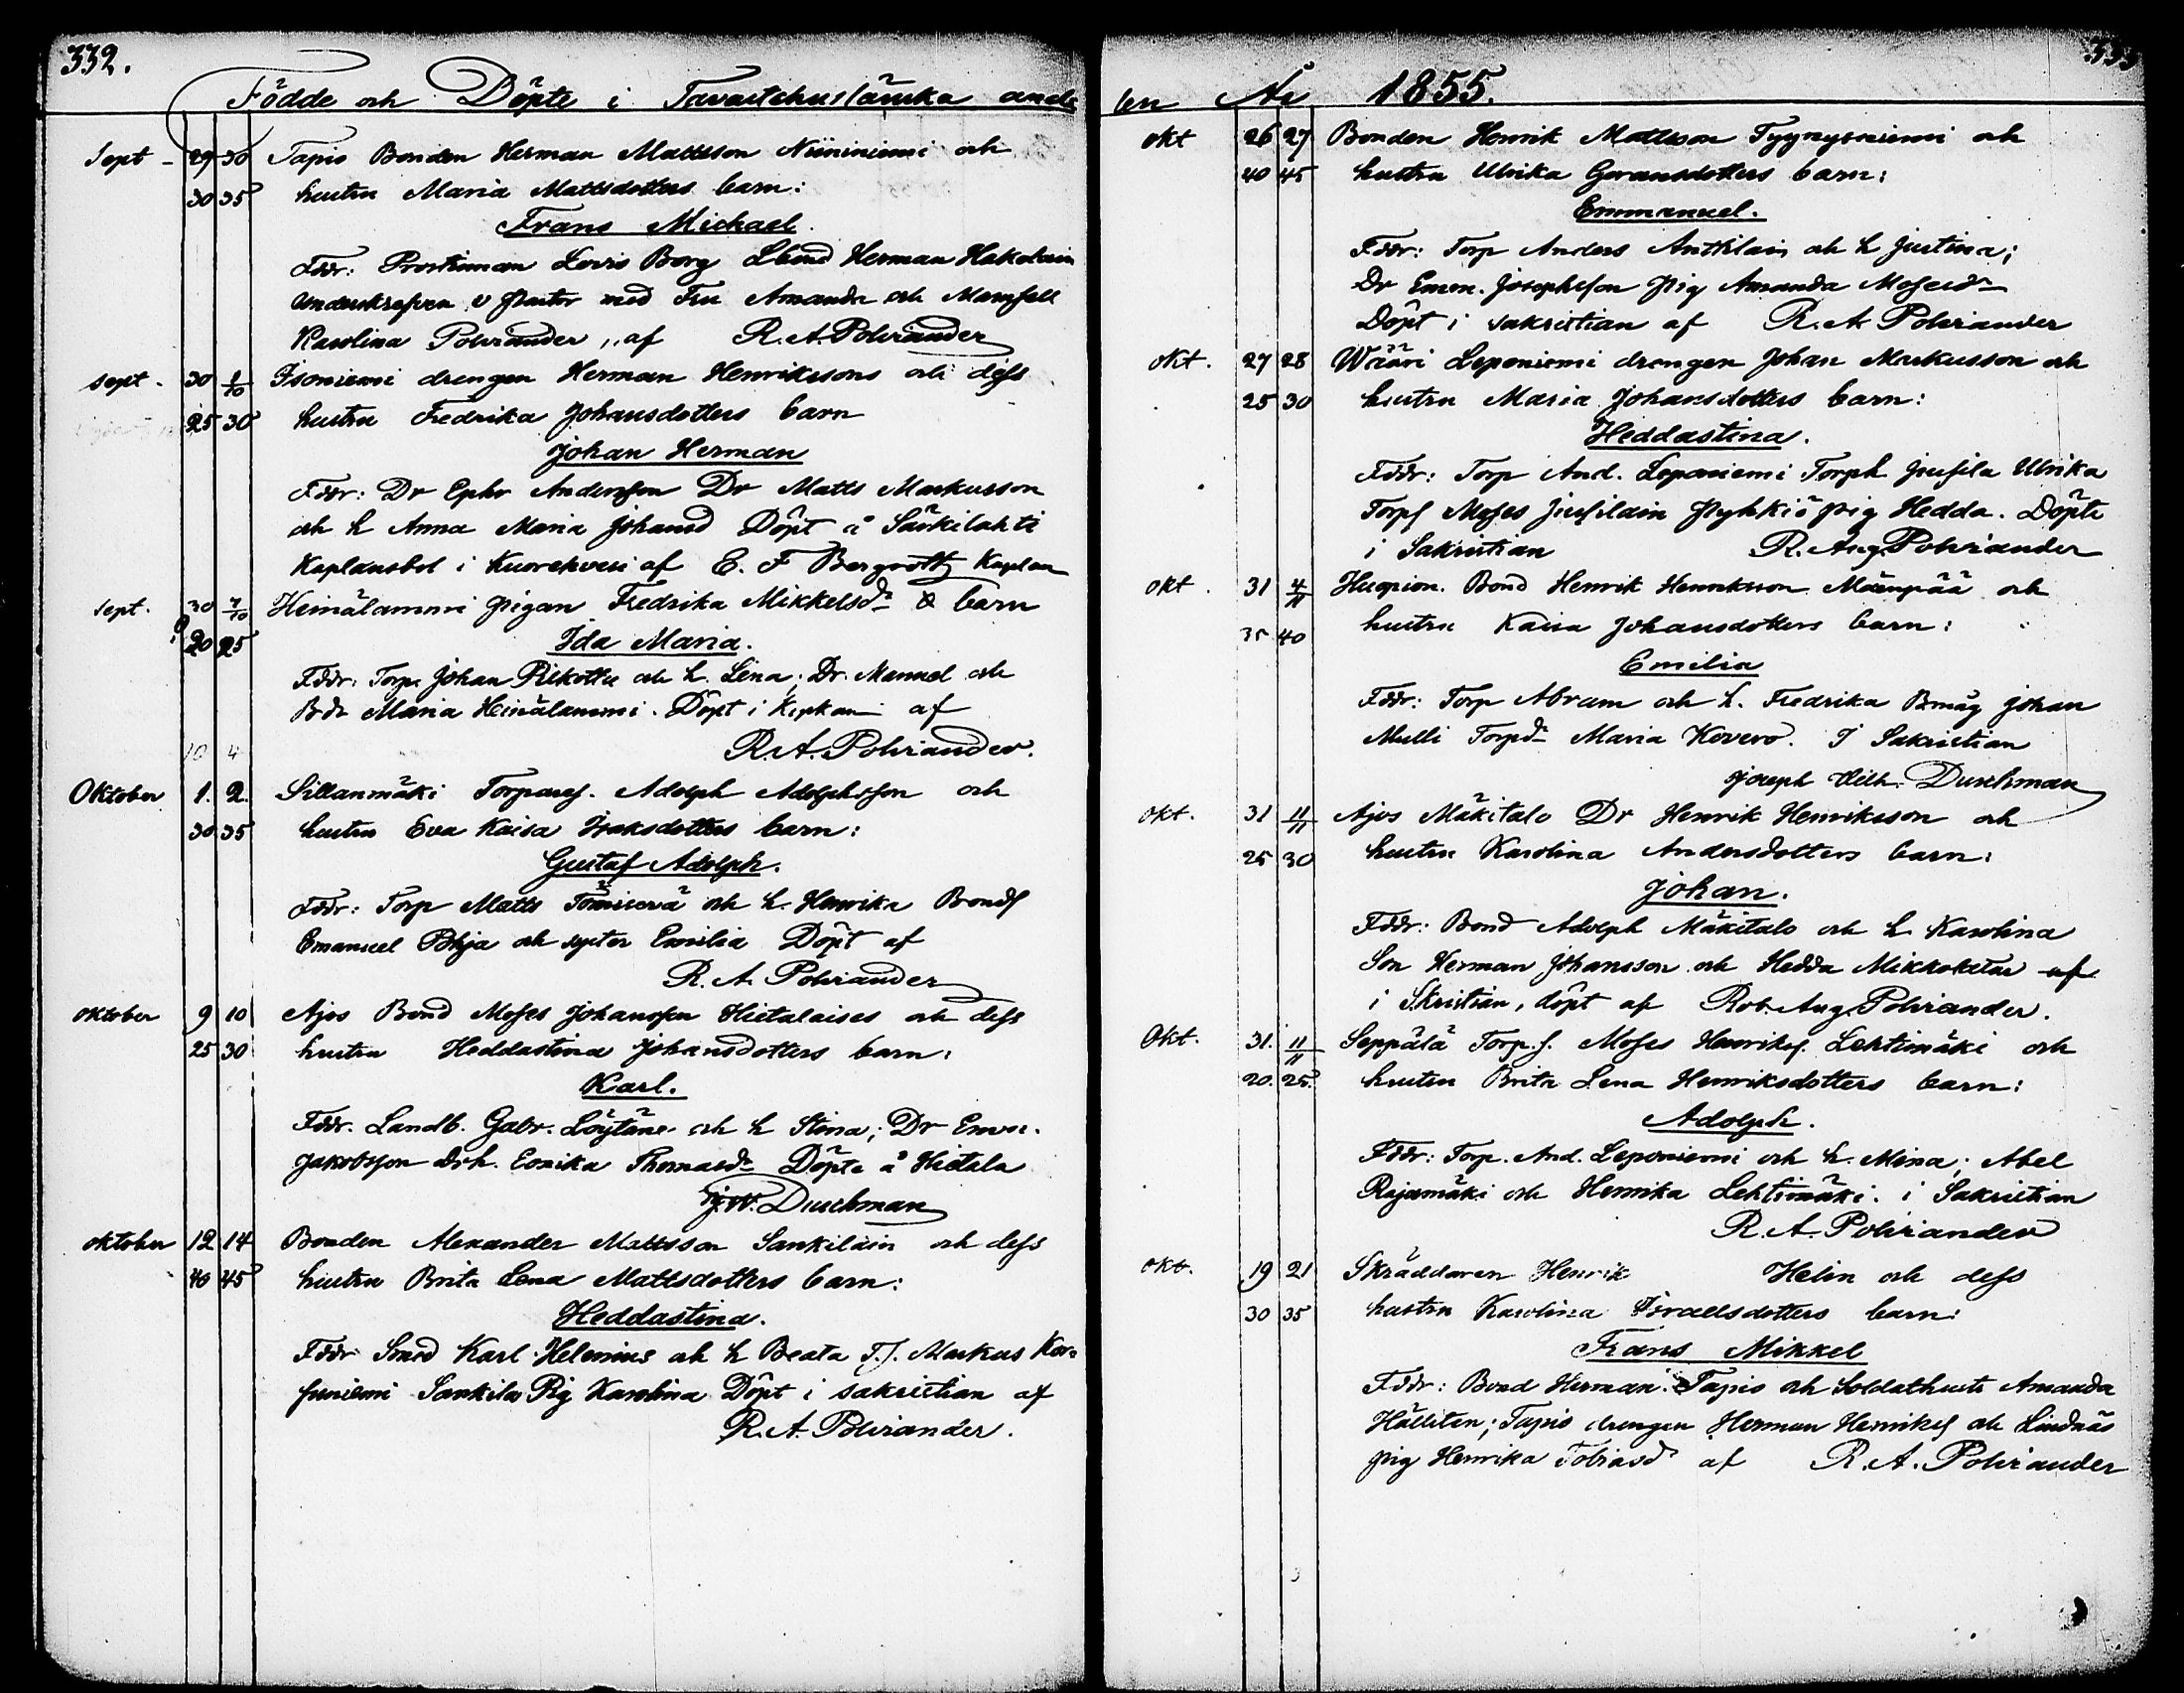 332.
Födde och Döpte i Tavastehusländska ande
Sept - 29 30 Tapio Bonden Herman Mattsson Niininiemi och
30 35 hustru Maria Mattsdotters barn:
Frans Michael.
Fddr: Prostinnan Lovis Borg Lbond Herman Hakolain
Underskrefven v pastor med Fru Amanda och Mamsell
Karolina Polviander, af R. A. Polviander
sept. 30 1/10 Isoniemi drengen Herman Henrikssons och dess
25 30 hustru Fredrika Johansdotters barn
Johan Herman
Fddr: Dr Ephr Andersson Dr Matts Markusson
och h Anna Maria Johansd Döpt å Särkilahti
Kaplansbol i Kuorekvesi af E. F Bergroth Kaplan
sept. 30 7/10 Heinälammi pigan Fredrika Mikkelsdr barn
20 25 Ida Maria.
Fddr: Torp. Johan Pilkottu och h. Lena; Dr. Manuel och
Bdr Maria Heinälammi. Döpt i Kyrkan af
10 4 R. A. Polviander.
Oktober 1. 2. Sillanmäki Torpares. Adolph Adolphsson och
30 35 hustru Eva Kaisa Isaksdotters barn:
Gustaf Adolph.
Fddr: Torp Matts och h. Henrika Bonds
Emanuel Pohja och syster Emilia Döpt af
R. A. Polviander
oktober 9 10 Ajos Bond Moses Johansson Hietalaises och dess
25 30 hustru Heddastina Johansdotters barn:
Karl.
Fddr. Landb. Gabr. Löytäne och h Stina; Dr Eman.
Jakobsson Drh. Eonika Thomasdr Döpte å Hietala
J. W. Duschman
oktober 12 14 Bonden Alexander Mattsson Sankilain och dess
40 45 hustru Brita Lena Mattsdotters barn:
Heddastina.
Fddr Smed Karl Helenius och h Beata T.f. Markus Kor=
suniemi Sankila Pig Karolina Döpt i sakristian af
R. A. Polviander.
333
len År 1855.
Okt 26 27 Bonden Henrik Mattsson Tyynysniemi och
40 45 hustru Ulrika Göransdotters barn:
Emmanuel.
Fddr: Torp Anders Anttilain och h Justina;
Dr Eman. Josephsson pig Amanda Mosesdr
Döpt i sakristian af R. A. Polviander
okt. 27 28 Wääri Leponiemi drengen Johan Markusson och
25 30 hustru Maria Johansdotters barn:
Heddastina.
Fddr: Torp And. Leponiemi Torph Jussila Ulrika
Torps Moses Jussilain Pyhkiö pig Hedda. Döpte
i Sakristian R. Aug. Polviander
okt. 31 4/11 Huopion. Bond Henrik Henriksson Mäenpää och
35 40 hustru Kaisa Johansdotters barn:
Emilia
Fddr: Torp Abram och h. Fredrika Bmåg Johan
Mulli Torpdr Maria Kovero. I Sakristian
Joseph Vilh. Duschman
okt. 31 11/11 Ajos Mäkitalo Dr Henrik Henriksson och
25 30 hustru Karolina Andersdotters barn:
Johan.
Fddr: Bond Adolph Mäkitalo och h Karolina
Son Herman Johansson och Hedda Mikkoketar af
i Skristian, döpt af Rob. Aug. Polviander.
Okt. 31. 11/11 Seppälä Torp.s. Moses Henrikss. Lehtimäki och
20. 25. hustru Brita Lena Henriksdotters barn:
Adolph.
Fddr: Torp. And. Leponiemi och h. Mina; Abel
Rajamäki och Henrika Lehtimäki. i Sakristian
R. A. Polviander
okt. 19 21 Skräddaren Henrik Helin och dess
30 35 hustru Karolina Israelsdotters barn:
Frans Mikkel
Fddr: Bond Herman Tapio och Soldathust Amanda
Hälliten; Tapio drengen Herman Henrikss och Lindnäs
pig Henrika Tobiasdr af R. A. Polviander